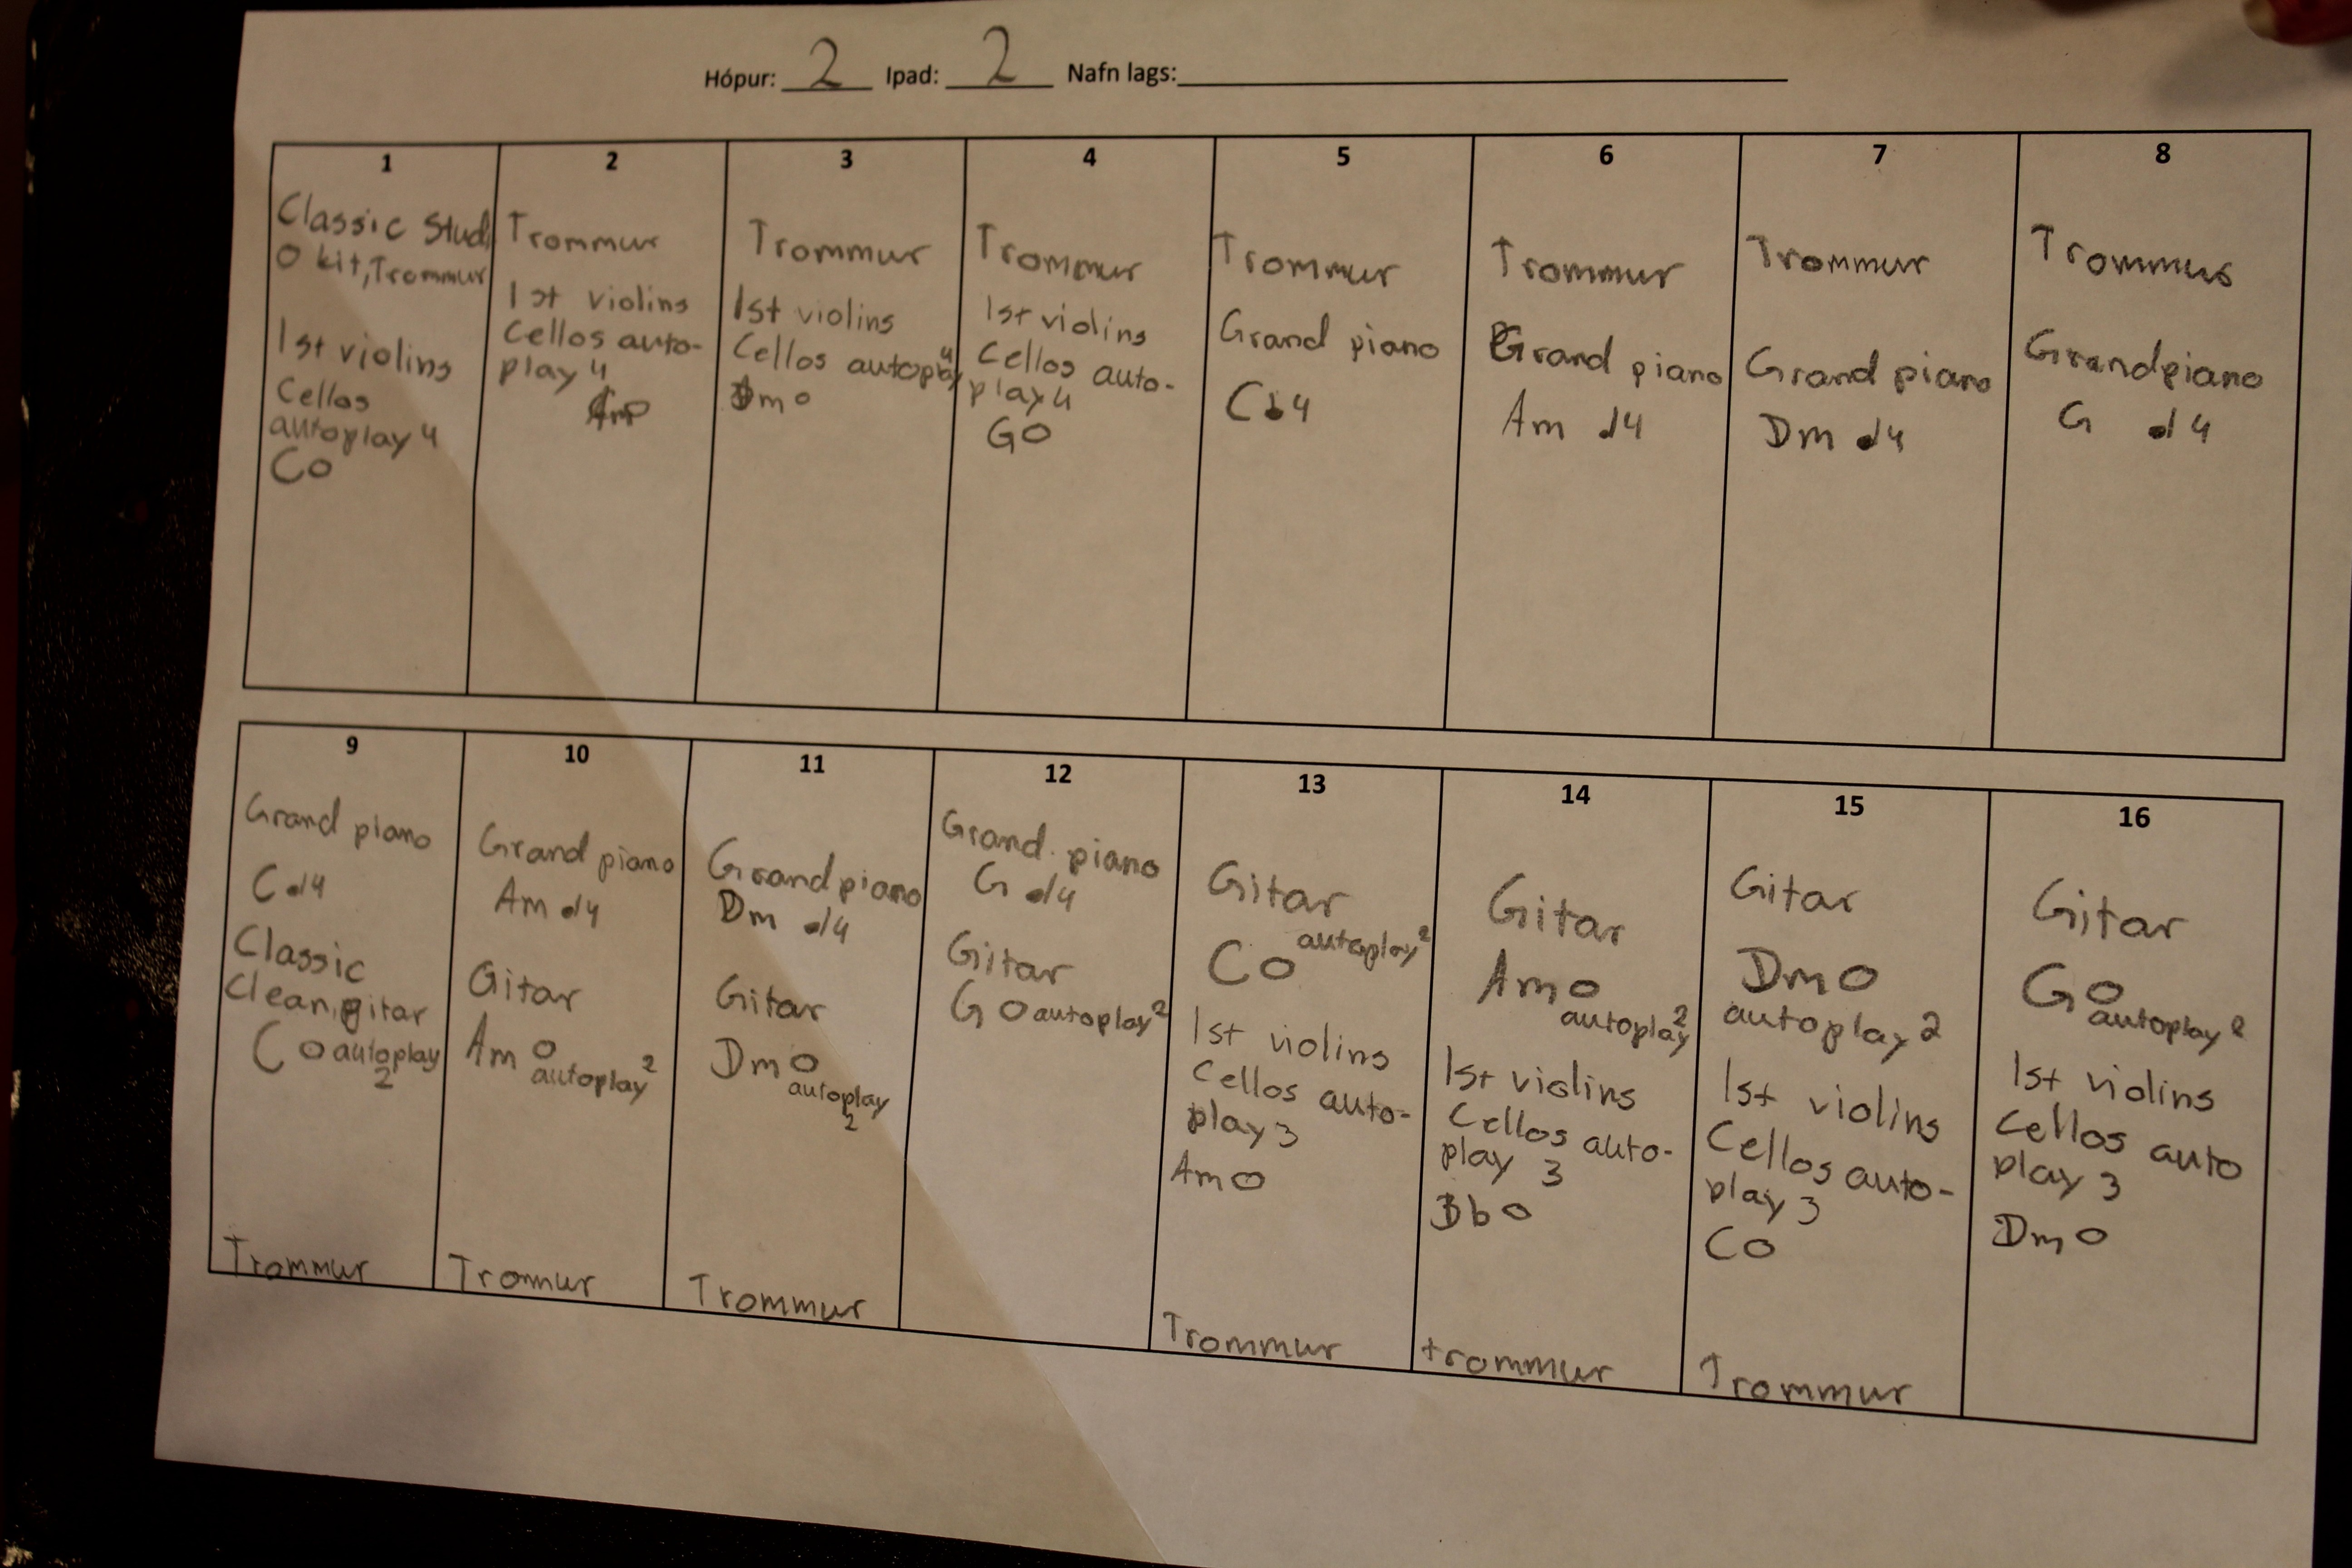 Hópur: 2 Ipad: 2 Nafn lags:
1
Classic Studi
o kit, Trommur
1st violins
Cellos
autoplay 4
C o
2
Trommur
1st violins
Cellos auto-
play 4
3
Trommur
1st violins
Cellos autoplay 4
Dm o
4
Trommur
1st violins
Cellos auto-
play 4
G o
5
Trommur
Grand piano
C d4
6
Trommur
Grand piano
Am d4
7
Trommur
Grand piano
Dm d4
8
Trommur
Grandpiano
G d4
9
Grand piano
C d4
Classic
Clean, gitar
C o autoplay
2
Trommur
10
Grand piano
Am d4
Gitar
Am o
autoplay 2
Trommur
11
Grandpiano
Dm d4
Gitar
Dm o
autoplay
2
Trommur
12
Grand piano
G d4
Gitar
G o autoplay 2
13
Gitar
autoplay 2
C o
1st violins
Cellos auto-
play 3
Am o
Trommur
14
Gitar
Am o
autoplay 2
1st violins
Cellos auto-
play 3
Bb o
trommur
15
Gitar
Dm o
autoplay 2
1st violins
Cellos auto-
play 3
C o
Trommur
16
Gitar
G o
autoplay 2
1st violins
Cellos auto
play 3
Dm o